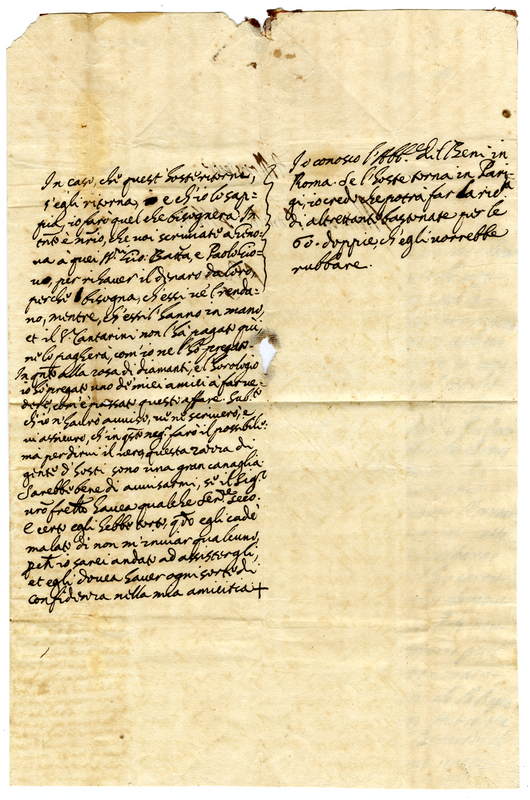 In caso, che quest'hoste ritorna,
s'egli ritorna, e ch'io lo sap-
pia, io farò quel che bisognerà. In
tñto è ñrio, che voi scriviate à Geno-
va à quei ss.ri Gio: Batta, e Paolo Gio-
vo, per rihaver il denaro da loro,
perche bisogna, ch'essi ve l'renda-
no, mentre, ch'essi l'hanno in mano,
et il s.r Santarini non l'hà pagato qui,
ne lo pagherà, com'io ne l'hò pregato.
In qñto alla rosa di diamanti, e l'horologio
io hò pregato uno de miei amici à far ve-
dere, com'è passato quest'affare. Sub.to
ch'io n'havrò avviso, ve ne scriverò, e
vi assicuro, ch'in qsto neg.o farò il possibile.
mà per dirvi il vero, questa razza di
gente d'hosti sono una gran canaglia.
Sarebbe bene di avvisarmi, se il sig.r
vro frello havea qualche Ser.re seco.
E certo egli hebbe torto, qdo egli cadè
malato di non m'inviar qualcuno,
pchè io sarei andato ad assistergli,
et egli dovea haver ogni sorte di
confidenza nella mia amicitia +
Io conosco l'Abb.e del Beni in
Roma. Se l'hoste torna in Pari-
gi, io credo che potrà far la ricev.ta
di altrettante bastonate per le
60. doppie, ch'egli vorrebbe
rubbare.